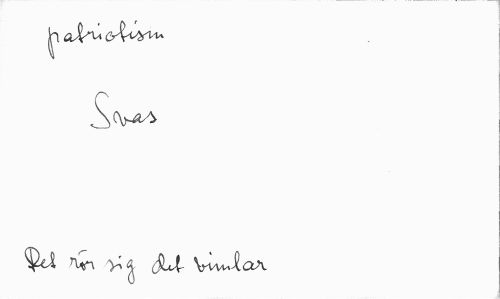 patriotism
Svas
Det rör sig det vimlar